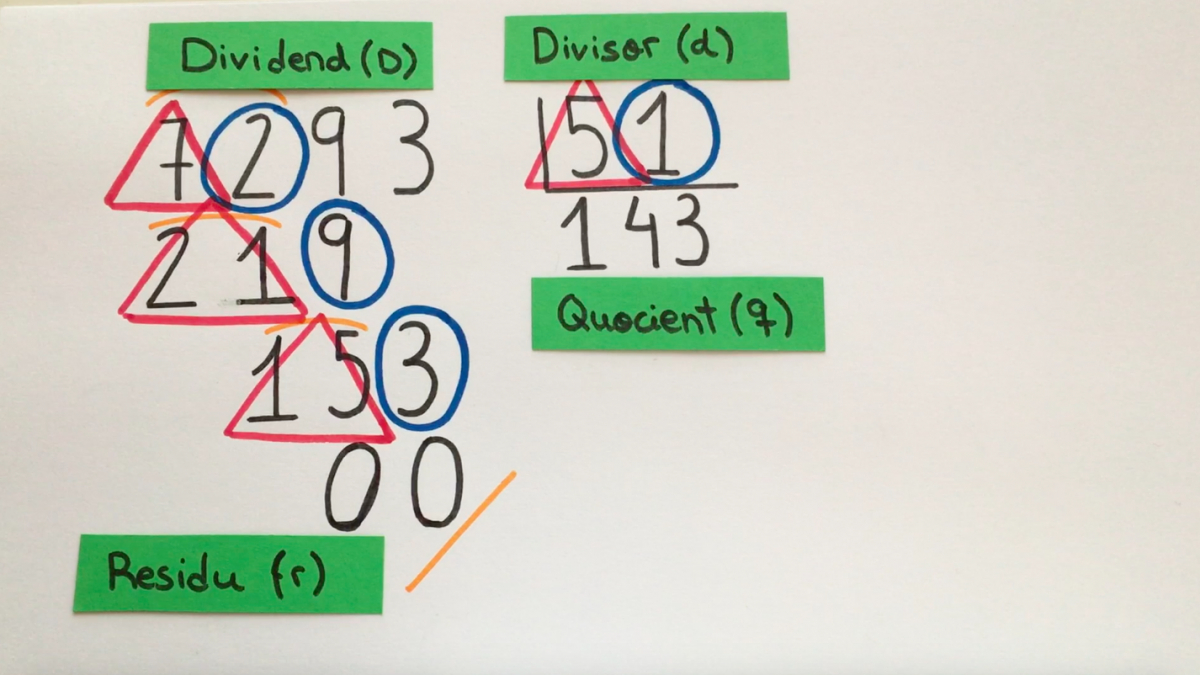 Dividend (D)
Divisor (d)
7293
51
219
143
153
Quocient (q)
00
Residu (r)